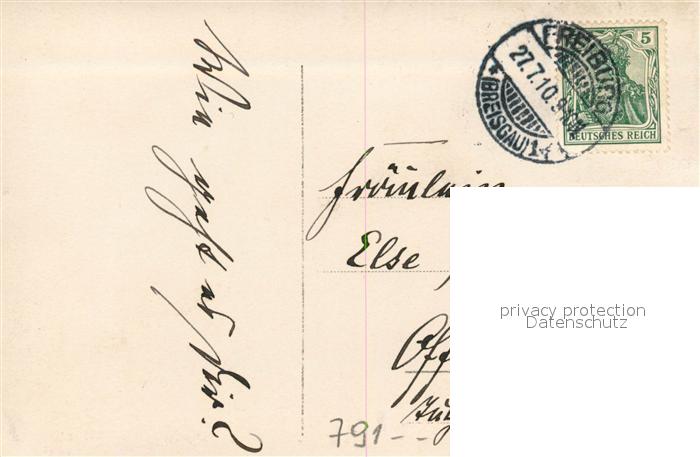 Wie geht es Dir?
FREIBURG
27.7.10.
(BREISGAU)
5
DEUTSCHES REICH
Fräulein
Else
Off
791--
privacy protection
Datenschutz